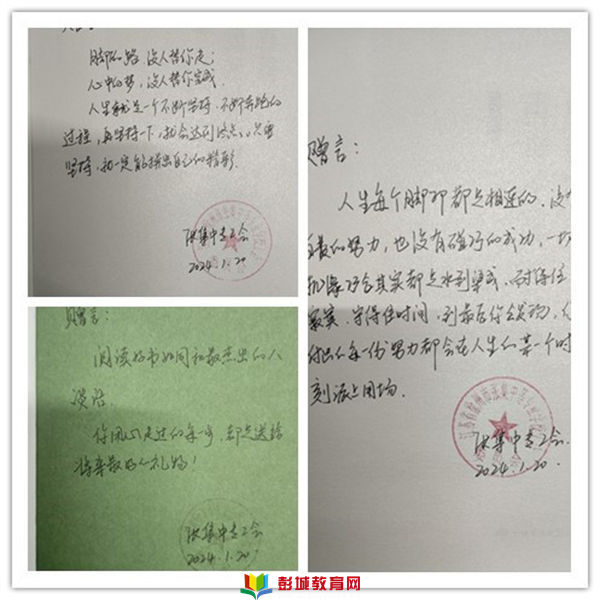 脚下的路,没人替你走;
心中的梦,没人替你完成.
人生就是一个不断坚持、不断奔跑的
过程,再坚持一下,就会达到终点,只要
坚持,就一定能拼出自己的精彩.
张集中专工会
2024.1.20
赠言:
阅读好书如同和最杰出的人
谈话
你风雨走过的每一步,都是送给
将来最好的礼物!
张集中专工会
2024.1.20
赠言:
人生每个脚印都是相连的,没
的努力,也没有碰巧的成功,一切
机缘巧合其实都是水到渠成,耐得住
寂寞,守得住时间,到最后你会发现,
付出的每一份努力都会在人生的某一个时
刻派上用场.
张集中专工会
2024.1.20.
彭城教育网